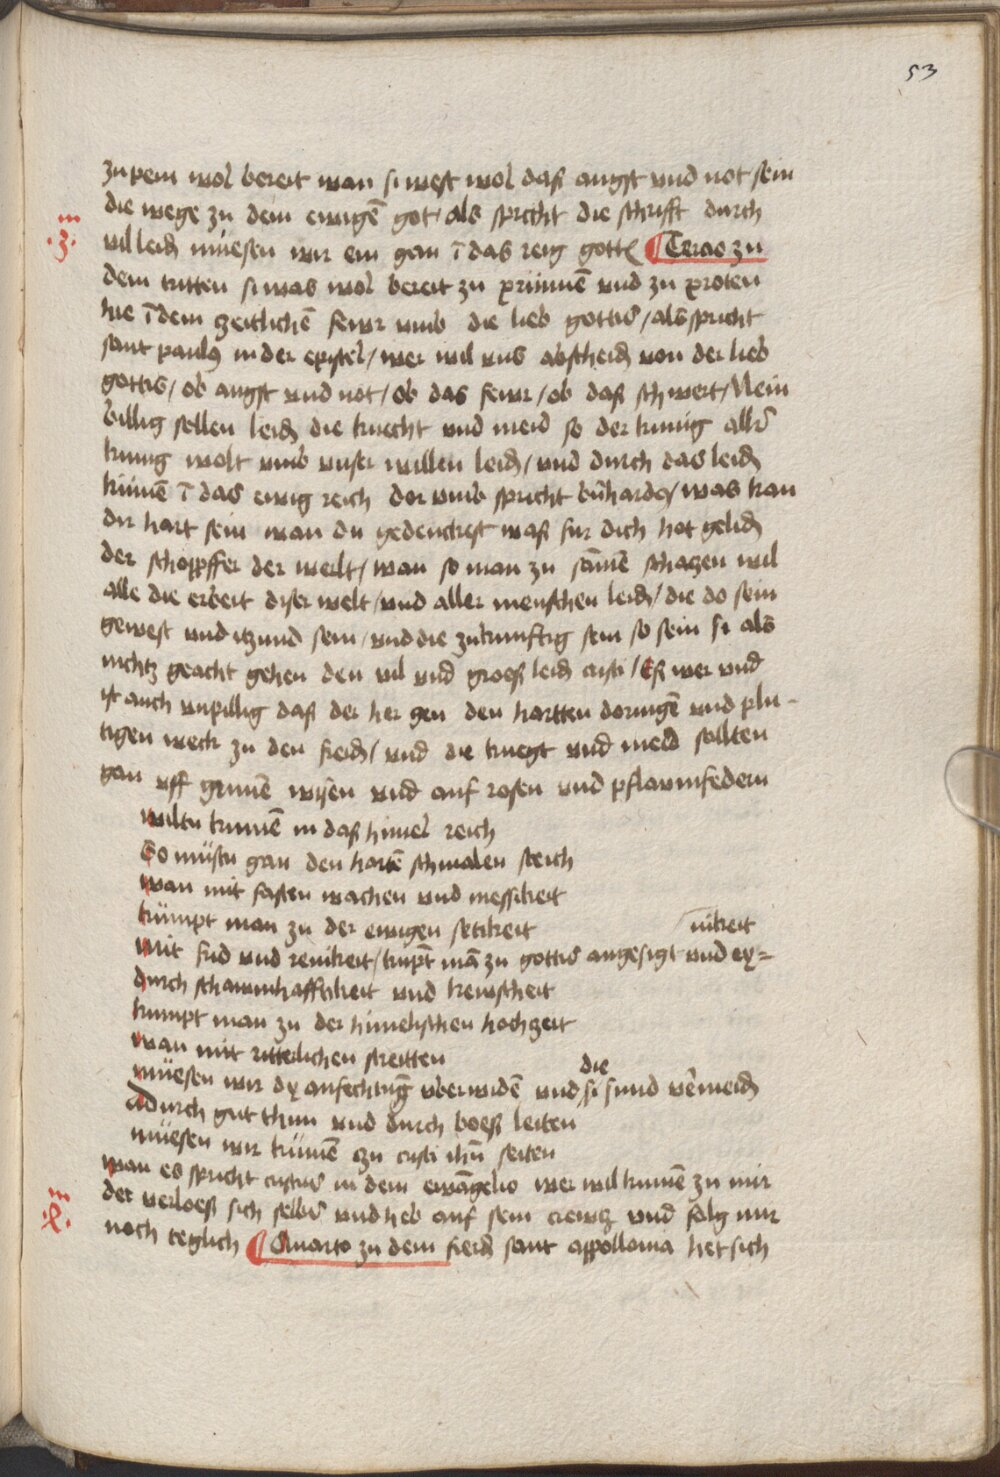 53
zu pein wol bereit wan si west wol daß angst vnd not sein
die wege zu dem ewigē got / als spricht die schrifft durch
m
.3.
vil leidē müesen wir ein gan ī das reig gottꝭ Tercio zu
dem tritten si was wol bereit zu prünnē vnd zu proten
hie ī dem zeitlichē fewr vmb die lieb gottis / als spricht
sant paulꝰ in der epistel / wer wil vns abscheidē von der lieb
gottis / ob angst vnd not / ob das fewr / ob daß schwert / Nein
billig sollen leidē die knecht vnd meid so der kunig allꝰ
kunig wolt vmb vnser willen leidē / vnd durch das leidē
kümē ī das ewig reich dor vmb spricht bn̄hardꝰ / was kan
dir hart sein wan du gedenckest waß fur dich hot gelidē
der schopffer der werlt / wan so man zu sāmē schaczen wil
alle die erbeit diser welt / vnd aller menschen leidē / die do sein
gewest vnd itzund sein / vnd die zukunfftig sein so sein si als
nichtz geacht gehen den vil vnd groeß leidē cristi / Eß wer vnd
ist auch vnpillig daß der her gen den hartten doringē vnd plu-
tigen weck zu den freidē / vnd die knegt vnd meid sollten
gan vff grunē wisen vnd auf rosen vnd pflawmfedern
wiltu kumē in daß himel reich
So müstu gan den hartē schmalen steich
wan mit fasten wachen vnd messikeit
kümpt man zu der ewigen setikeit
nikeit
mit frid vnd reinikeit / kūpt mā zu gottis angesigt vnd ey=
durch schawmhafftikeit vnd kewscheit
kumpt man zu der himelischen hochzeit
wan mit ritterlichen streitten
die
müesen wir dy anfechtūg vberwidē vnd si sund vermeidē
Adurch gut thun vnd durch boeß leiten
müesen wir kümē zu cristi ihū seiten
wan es spricht cristus in dem ewāgelio wer wil kumē zu mir
m
.4.
der verloeß sich selbꝰ vnd heb auf sein crewtz vnd folg mir
noch teglich Quarto zu dem fierdē sant appollonia het sich